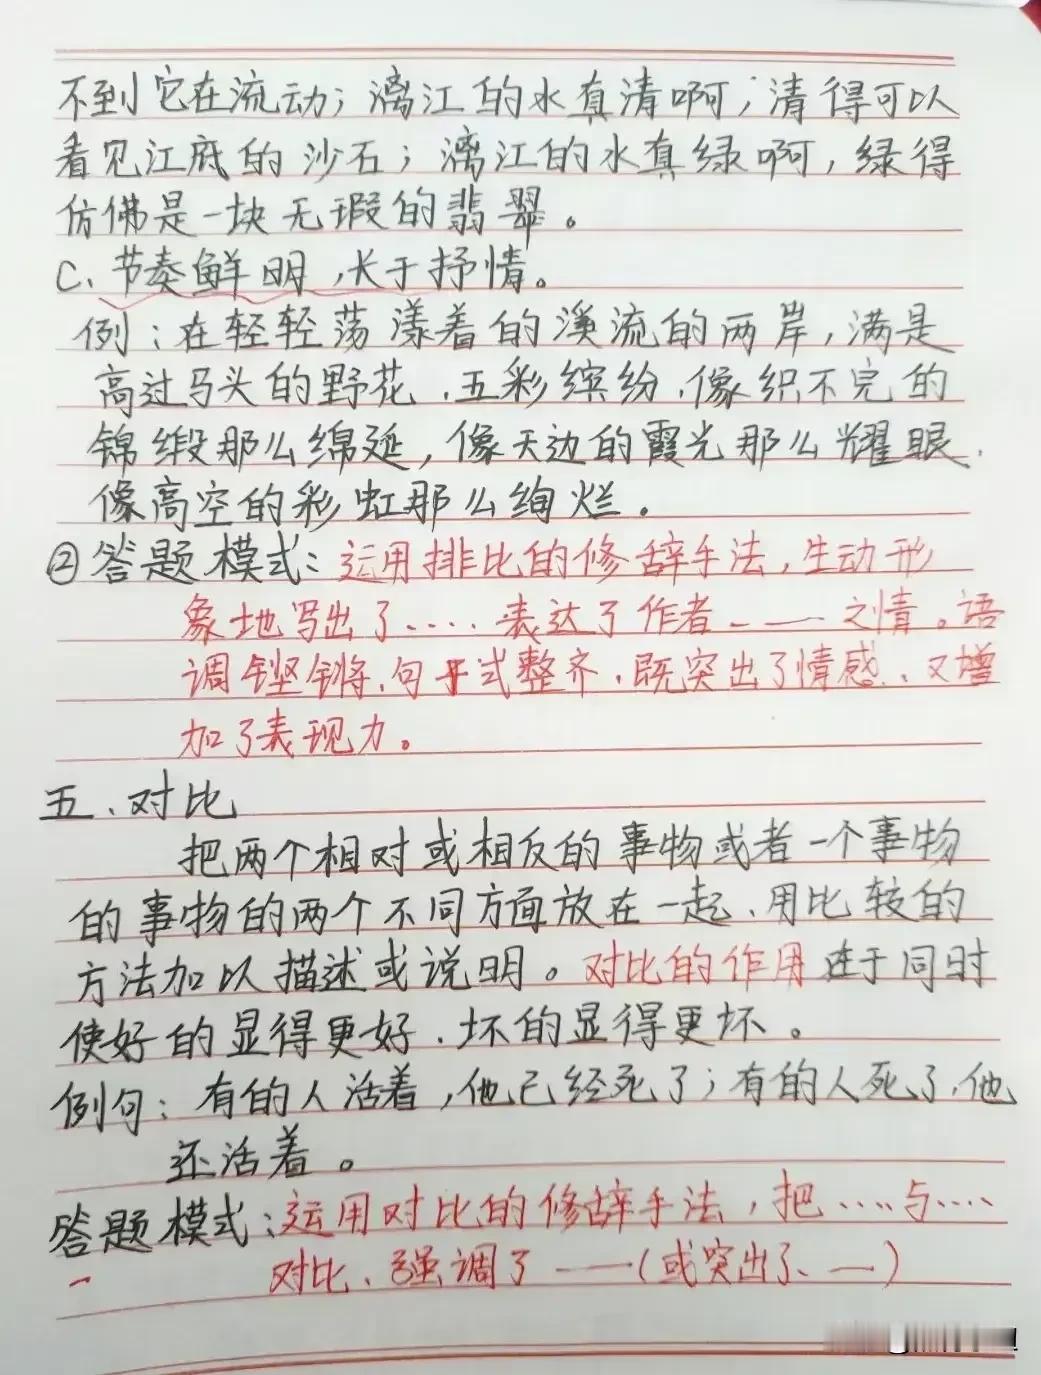 不到它在流动；漓江的水真清啊，清得可以
看见江底的沙石；漓江的水真绿啊，绿得
仿佛是一块无瑕的翡翠。
C、节奏鲜明，长于抒情。
例：在轻轻荡漾着的溪流的两岸，满是
高过马头的野花，五彩缤纷，像织不完的
锦缎那么绵延，像天边的霞光那么耀眼，
像高空的彩虹那么绚烂。
②答题模式：运用排比的修辞手法，生动形
象地写出了....表达了作者——之情。语
调铿锵，句式整齐，既突出了情感，又增
加了表现力。
五、对比
把两个相对或相反的事物或者一个事物
的事物的两个不同方面放在一起，用比较的
方法加以描述或说明。对比的作用在于同时
使好的显得更好，坏的显得更坏。
例句：有的人活着，他已经死了；有的人死了，他
还活着。
答题模式：运用对比的修辞手法，把....与....
对比，强调了——（或突出了、—）